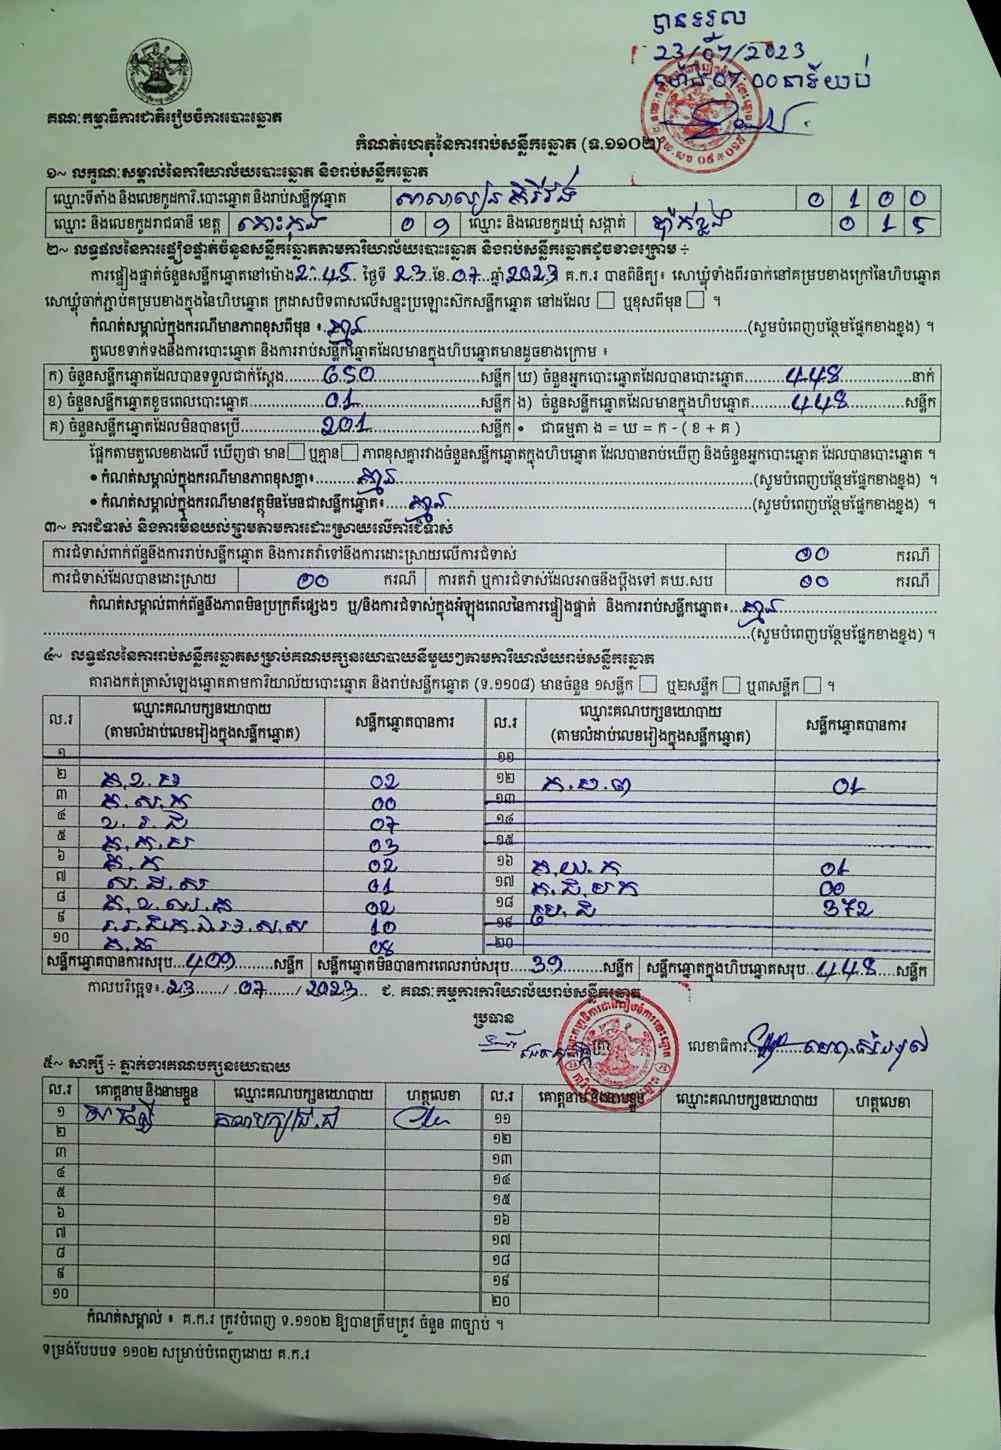 បានទទួល
23/07/2023
ម៉ោង 07:00 នាទីយប់
គណៈកម្មាធិការជាតិរៀបចំការបោះឆ្នោត
កំណត់ហេតុនៃការរាប់សន្លឹកឆ្នោត (ទ.១១០២)
១~ លក្ខណៈសម្គាល់នៃការិយាល័យបោះឆ្នោត និងរាប់សន្លឹកឆ្នោត
ឈ្មោះទីតាំង និងលេខកូដការិ.បោះឆ្នោត និងរាប់សន្លឹកឆ្នោត សាលារៀន គិរីវង់ 0 1 0 0
ឈ្មោះ និងលេខកូដរាជធានី ខេត្ត កោះកុង 0 9 ឈ្មោះ និងលេខកូដឃុំ សង្កាត់ ប៉ាក់ខ្លង 0 1 5
២~ លទ្ធផលនៃការផ្ទៀងផ្ទាត់ចំនួនសន្លឹកឆ្នោតតាមការិយាល័យបោះឆ្នោត និងរាប់សន្លឹកឆ្នោតដូចខាងក្រោម ÷
ការផ្ទៀងផ្ទាត់ចំនួនសន្លឹកឆ្នោតនៅម៉ោង 2:45 ថ្ងៃទី 23 ខែ 07 ឆ្នាំ 2023 គ.ក.រ បានពិនិត្យ៖ សោឃ្លុំទាំងពីរចាក់នៅគម្របខាងក្រៅនៃហិបឆ្នោត
សោឃ្លុំចាក់ភ្ជាប់គម្របខាងក្នុងនៃហិបឆ្នោត ក្រដាសបិទពាសលើសន្ទះប្រឡោះស៊កសន្លឹកឆ្នោត នៅដដែល ☐ ឬខុសពីមុន ☐ ។
កំណត់សម្គាល់ក្នុងករណីមានភាពខុសពីមុន ៖ គ្មាន (សូមបំពេញបន្ថែមផ្នែកខាងខ្នង) ។
តួលេខទាក់ទងនឹងការបោះឆ្នោត និងការរាប់សន្លឹកឆ្នោតដែលមានក្នុងហិបឆ្នោតមានដូចខាងក្រោម ៖
ក) ចំនួនសន្លឹកឆ្នោតដែលបានទទួលជាក់ស្តែង 650 សន្លឹក ឃ) ចំនួនអ្នកបោះឆ្នោតដែលបានបោះឆ្នោត 448 នាក់
ខ) ចំនួនសន្លឹកឆ្នោតខូចពេលបោះឆ្នោត 01 សន្លឹក ង) ចំនួនសន្លឹកឆ្នោតដែលមានក្នុងហិបឆ្នោត 448 សន្លឹក
គ) ចំនួនសន្លឹកឆ្នោតដែលមិនបានប្រើ 201 សន្លឹក • ជាធម្មតា ង = ឃ = ក - ( ខ + គ )
ផ្អែកតាមតួលេខខាងលើ ឃើញថា មាន ☐ ឬគ្មាន ☐ ភាពខុសគ្នារវាងចំនួនសន្លឹកឆ្នោតក្នុងហិបឆ្នោត ដែលបានរាប់ឃើញ និងចំនួនអ្នកបោះឆ្នោត ដែលបានបោះឆ្នោត ។
• កំណត់សម្គាល់ក្នុងករណីមានភាពខុសគ្នា៖ គ្មាន (សូមបំពេញបន្ថែមផ្នែកខាងខ្នង) ។
• កំណត់សម្គាល់ក្នុងករណីមានវត្ថុមិនមែនជាសន្លឹកឆ្នោត៖ គ្មាន (សូមបំពេញបន្ថែមផ្នែកខាងខ្នង) ។
៣~ ការជំទាស់ និងការមិនយល់ព្រមតាមការដោះស្រាយលើការជំទាស់
ការជំទាស់ពាក់ព័ន្ធនឹងការរាប់សន្លឹកឆ្នោត និងការតវ៉ាទៅនឹងការដោះស្រាយលើការជំទាស់ 00 ករណី
ការជំទាស់ដែលបានដោះស្រាយ 00 ករណី ការតវ៉ា ឬការជំទាស់ដែលអាចនឹងប្តឹងទៅ គឃ.សប 00 ករណី
កំណត់សម្គាល់ពាក់ព័ន្ធនឹងភាពមិនប្រក្រតីផ្សេងៗ ឬ/និងការជំទាស់ក្នុងអំឡុងពេលនៃការផ្ទៀងផ្ទាត់ និងការរាប់សន្លឹកឆ្នោត៖ គ្មាន
(សូមបំពេញបន្ថែមផ្នែកខាងខ្នង) ។
៤~ លទ្ធផលនៃការរាប់សន្លឹកឆ្នោតសម្រាប់គណបក្សនយោបាយនីមួយៗតាមការិយាល័យរាប់សន្លឹកឆ្នោត
តារាងកត់ត្រាសំឡេងឆ្នោតតាមការិយាល័យបោះឆ្នោត និងរាប់សន្លឹកឆ្នោត (ទ.១១០៨) មានចំនួន ១សន្លឹក ☐ ឬ២សន្លឹក ☐ ឬ៣សន្លឹក ☐ ។
ល.រ ឈ្មោះគណបក្សនយោបាយ (តាមលំដាប់លេខរៀងក្នុងសន្លឹកឆ្នោត) សន្លឹកឆ្នោតបានការ ល.រ ឈ្មោះគណបក្សនយោបាយ (តាមលំដាប់លេខរៀងក្នុងសន្លឹកឆ្នោត) សន្លឹកឆ្នោតបានការ
១ ១១
២ គ.ខ.ម 02 ១២ គ.ស.ព 01
៣ គ.ស.ក 00 ១៣
៤ ខ.រ.ជ 07 ១៤
៥ គ.ក.ស 03 ១៥
៦ គ.ក 02 ១៦ គ.យ.ក 01
៧ ស.ជ.ស 01 ១៧ គ.ជ.មក 00
៨ គ.ខ.ឈ.គ 02 ១៨ ប្រ.ជ 372
៩ 10 ១៩
១០ គ.ធ 08 ២០
សន្លឹកឆ្នោតបានការសរុប 409 សន្លឹក សន្លឹកឆ្នោតមិនបានការពេលរាប់សរុប 39 សន្លឹក សន្លឹកឆ្នោតក្នុងហិបឆ្នោតសរុប 448 សន្លឹក
កាលបរិច្ឆេទ៖ 23 / 07 / 2023 ជ. គណៈកម្មការការិយាល័យរាប់សន្លឹកឆ្នោត
ប្រធាន
លេខាធិការ
៥~ សាក្សី ÷ ភ្នាក់ងារគណបក្សនយោបាយ
ល.រ គោត្តនាម និងនាមខ្លួន ឈ្មោះគណបក្សនយោបាយ ហត្ថលេខា ល.រ គោត្តនាម និងនាមខ្លួន ឈ្មោះគណបក្សនយោបាយ ហត្ថលេខា
១ គណបក្ស ១១
២ ១២
៣ ១៣
៤ ១៤
៥ ១៥
៦ ១៦
៧ ១៧
៨ ១៨
៩ ១៩
១០ ២០
កំណត់សម្គាល់ ៖ គ.ក.រ ត្រូវបំពេញ ទ.១១០២ ឱ្យបានត្រឹមត្រូវ ចំនួន ៣ច្បាប់ ។
ទម្រង់បែបបទ ១១០២ សម្រាប់បំពេញដោយ គ.ក.រ